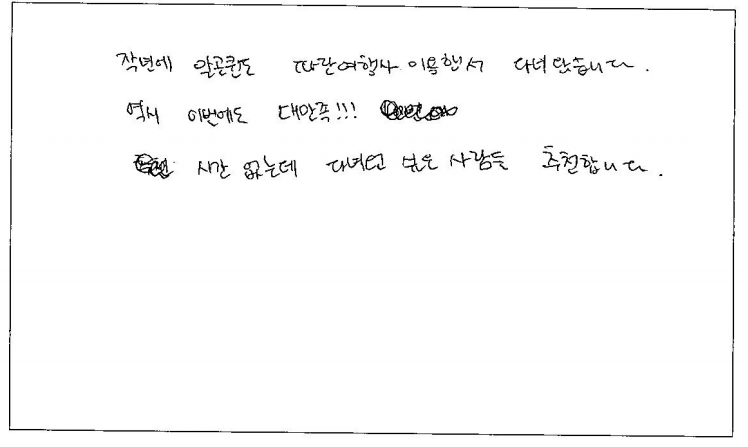 작년에 알곤퀸도 파란여행사 이용해서 다녀 왔습니다.
역시 이번에도 대만족!!!
시간 없는데 다녀오고 싶은 사람들 추천합니다.